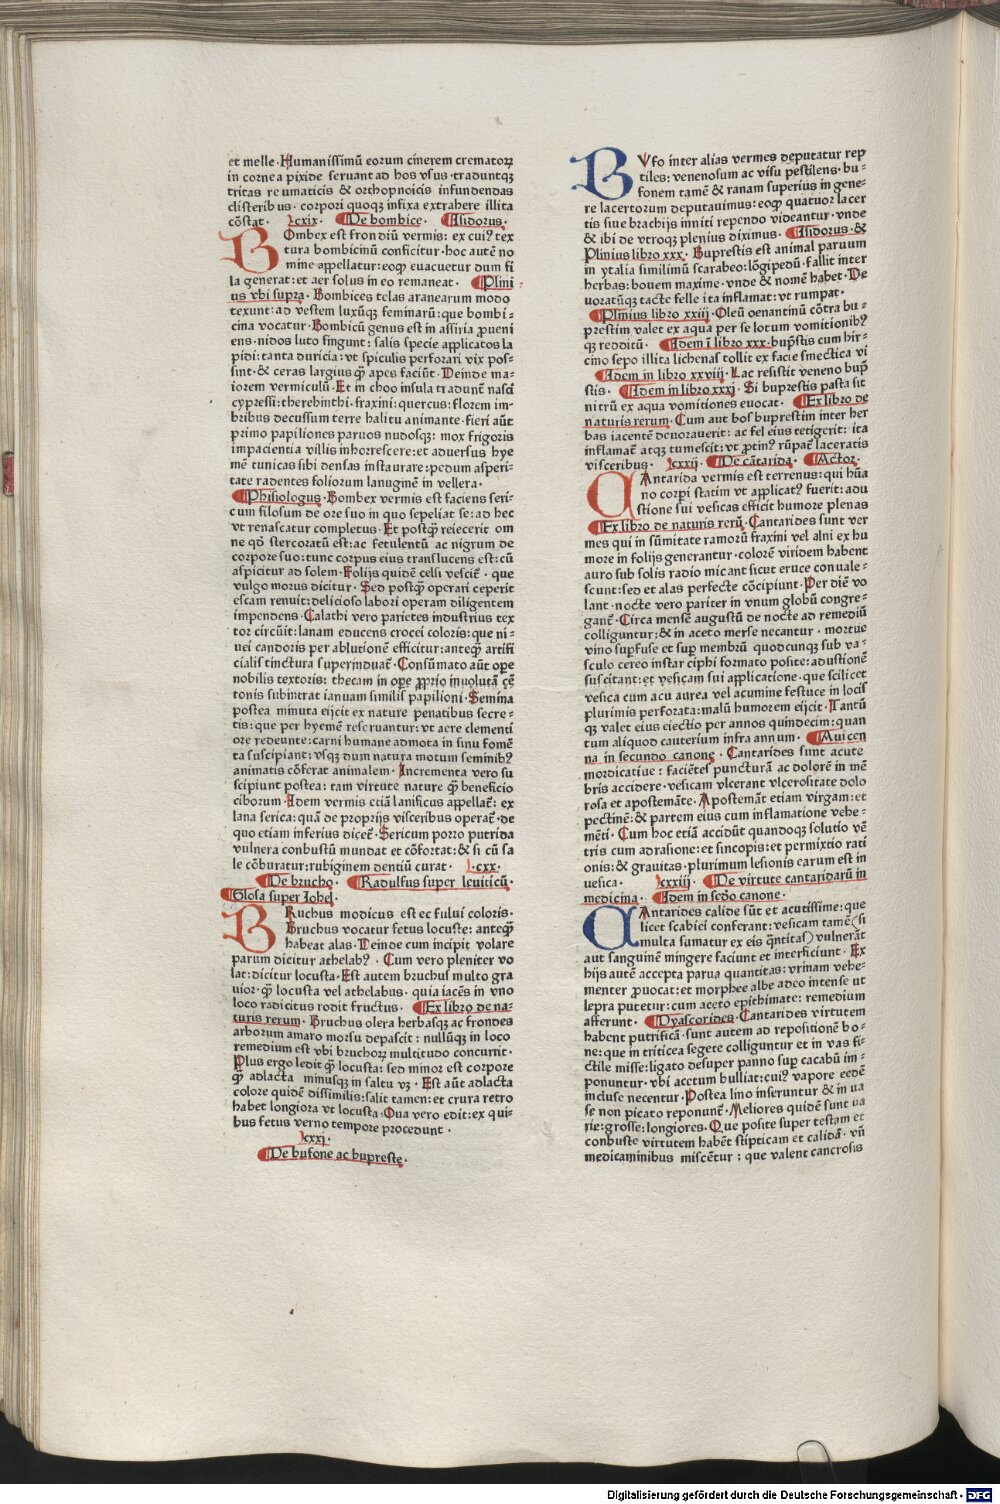 et melle · Humanissimū eorum cinerem crematoꝝ
in cornea pixide seruant ad hos vsus · traduntqꝫ
tritas reumaticis & orthopnoicis infundendas
clisteribus · corpori quoqꝫ infixa extrahere illita
cōstat · .cxix. De bombice · Isidorus ·
BOmbex est frondiū vermis: ex cuiꝰ tex
tura bombicinū conficitur · hoc autē no
mine appellatur: eoqꝫ euacuetur dum fi
la generat: et aer solus in eo remaneat · Plini
us vbi supra · Bombices telas aranearum modo
texunt: ad vestem luxūqꝫ feminarū: que bombi-
cina vocatur · Bombicū genus est in assiria ꝓueni
ens · nidos luto fingunt: salis specie applicatos la
pidi: tanta duricia: vt spiculis perforari vix pos-
sint · & ceras largius ꝙ̄ apes faciūt · Deinde ma-
iorem vermiculū · Et in choo insula tradunt̄ nasci
cypressi: therebinthi · fraxini: quercus: florem im-
bribus decussum terre halitu animante · fieri aūt
primo papiliones paruos nudosqꝫ: mox frigoris
impacientia villis inhorrescere: et aduersus hye
mē tunicas sibi densas instaurare: pedum asperi-
tate radentes foliorum lanuginē in vellera ·
Phisiologus · Bombex vermis est faciens seri-
cum filosum de ore suo in quo sepeliat se: ad hec
vt renascatur completus · Et postꝙ̄ reiecerit om
ne qd̄ stercoratū est: ac fetulentū ac nigrum de
corpore suo: tunc corpus eius translucens est: cū
aspicitur ad solem · Folijs quidē celsi vescit̄ · que
vulgo morus dicitur · Sed postꝙ̄ operari ceperit
escam renuit: delicioso labori operam diligentem
impendens · Calathi vero parietes industrius tex
tor circūit: lanam educens crocei coloris: que ni-
uei candoris per ablutionē efficitur: anteꝙ̄ artifi
cialis tinctura superinduat̄ · Consūmato aūt ope
nobilis textoris: thecam in ope ꝓprio inuolutā cē
tonis subintrat ianuam similis papilioni · Semina
postea minuta eijcit ex nature penatibus secre-
tis: que per hyemē reseruantur: vt aere clementi
ore redeunte: carni humane admota in sinu fomē
ta suscipiant: vsqꝫ dum natura motum seminibꝰ
animatis cōferat animalem · Incrementa vero su
scipiunt postea: tam virtute nature ꝙ̄ beneficio
ciborum · Idem vermis etiā lanificus appellat̄: ex
lana serica: quā de proprijs visceribus operat̄ · de
quo etiam inferius dicet̄ · Sericum porro putrida
vulnera conbustū mundat et cōfortat: & si cū sa
le cōburatur: rubiginem dentiū curat · .cxx.
De brucho · Radulfus super leuiticū ·
Glosa super Iohel ·
BRuchus modicus est ec fului coloris ·
Bruchus vocatur fetus locuste: anteꝙ̄
habeat alas · Deinde cum incipit volare
parum dicitur athelabꝰ · Cum vero pleniter vo
lat: dicitur locusta · Est autem bruchus multo gra
uior · ꝙ̄ locusta vel athelabus · quia iacēs in vno
loco radicitus rodit fructus · Ex libro de na-
turis rerum · Bruchus olera herbasqꝫ ac frondes
arborum amaro morsu depascit: nullūqꝫ in loco
remedium est vbi bruchoꝝ multitudo concurrit ·
Plus ergo ledit ꝙ̄ locusta: sed minor est corpore
ꝙ̄ adlacta minusqꝫ in saltu vꝫ · Est aūt adlacta
colore quidē dissimilis: salit tamen: et crura retro
habet longiora vt locusta · Oua vero edit: ex qui-
bus fetus verno tempore procedunt ·
.cxxi.
De bufone ac bupreste ·
BVfo inter alias vermes deputatur rep
tiles: venenosum ac visu pestilens · bu-
fonem tamē & ranam superius in gene-
re lacertorum deputauimus: eoqꝫ quatuor lacer
tis siue brachijs inniti rependo videantur · vnde
& ibi de vtroqꝫ plenius diximus · Isidorus · &
Plinius libro xxx · Buprestis est animal paruum
in ytalia similimū scarabeo: lōgipedū · fallit inter
herbas: bouem maxime · vnde & nomē habet · De
uoratūqꝫ tacte felle ita inflamat: vt rumpat ·
Plinius libro xxiij · Oleū oenantinū cōtra bu-
prestim valet ex aqua per se lotum vomitionibꝰ
qꝫ redditū · Idem ī libro xxx · bup̄stis cum hir-
cino sepo illita lichenas tollit ex facie smectica vi
Idem in libro xxviij · Lac resistit veneno bup̄
stis · Idem in libro xxxj · Si buprestis pasta sit
nitrū ex aqua vomitiones euocat · Ex libro de
naturis rerum · Cum aut bos buprestim inter her
bas iacentē deuorauerit: ac fel eius tetigerit: ita
inflamat̄ atqꝫ tumescit: vt ꝓtinꝰ rūpat̄ laceratis
visceribus · .cxxij. De cātarida · Actor ·
CAntarida vermis est terrenus: qui hūa
no corpi statim vt applicatꝰ fuerit: adu
stione sui vesicas efficit humore plenas
Ex libro de naturis rerū · Cantarides sunt ver
mes qui in sūmitate ramorū fraxini vel alni ex hu
more in folijs generantur · colorē viridem habent
auro sub solis radio micant sicut eruce conuale-
scunt: sed et alas perfecte cōcipiunt · Per diē vo
lant · nocte vero pariter in vnum globū congre-
gant̄ · Circa mensē augustū de nocte ad remediū
colliguntur: & in aceto merse necantur · mortue
vino suꝑfuse et suꝑ membrū quodcunqꝫ sub va-
sculo cereo instar ciphi formato posite: adustionē
suscitant: et vesicam sui applicatione · que scilicet
vesica cum acu aurea vel acumine festuce in locis
plurimis perforata: malū humorem eijcit · Tantū
qꝫ valet eius eiectio per annos quindecim: quan
tum aliquod cauterium infra annum · Auicen
na in secundo canone · Cantarides sunt acute
mordicatiue: faciētes puncturā ac dolorē in mē
bris accidere · vesicam vlcerant vlcerositate dolo
rosa et apostemāte · Apostemāt etiam virgam: et
pectinē: & partem eius cum inflamatione vehe-
mēti · Cum hoc etiā accidūt quandoqꝫ solutio vē
tris cum adrasione: et sincopis: et permixtio rati
onis: & grauitas · plurimum lesionis earum est in
vesica · .cxxiij. De virtute cantaridarū in
medicina · Idem in sec̄do canone ·
CAntarides calide sūt et acutissime: que
licet scabiei conferant: vesicam tamē (si
multa sumatur ex eis q̄ntitas) vulnerāt
aut sanguinē mingere faciunt et interficiunt · Ex
hijs autē accepta parua quantitas: vrinam vehe-
menter ꝓuocat: et morphee albe adeo intense ut
lepra putetur: cum aceto epithimate: remedium
afferunt · Dyascorides · Cantarides virtutem
habent putrificā · sunt autem ad repositionē bo-
ne: que in triticea segete colliguntur et in vas fi-
ctile misse: ligato desuper panno suꝑ cacabū im-
ponuntur · vbi acetum bulliat: cuiꝰ vapore eedē
incluse necentur · Postea lino inseruntur & in ua
se non picato reponunt̄ · Meliores quidē sunt ua
rie: grosse: longiores · Que posite super testam et
conbuste virtutem habēt stipticam et calidā · vn̄
medicaminibus miscētur: que valent cancrosis
Digitalisierung gefördert durch die Deutsche Forschungsgemeinschaft - DFG